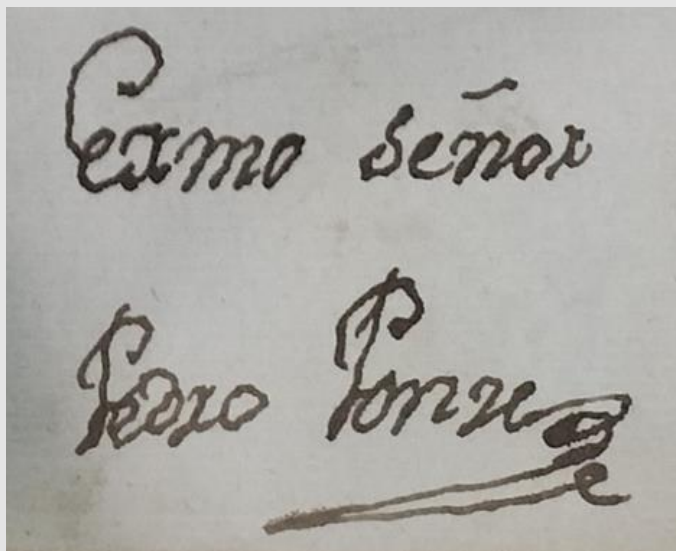 exmo señor
Pedro Ponze